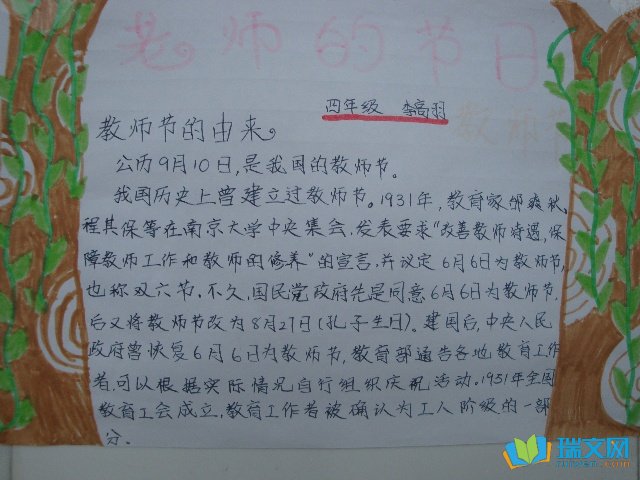 老师的节日
四年级 李高羽
教师节
教师节的由来。
公历9月10日,是我国的教师节。
我国历史上曾建立过教师节。1931年,教育家邰爽秋、
程其保等在南京大学中央集会,发表要求“改善教师待遇,保
障教师工作和教师的修养”的宣言,并议定6月6日为教师节,
也称双六节。不久,国民党政府先是同意6月6日为教师节,
后又将教师节改为8月27日(孔子生日)。建国后,中央人民
政府曾恢复6月6日为教师节,教育部通告各地教育工作
者,可以根据实际情况自行组织庆祝活动。1951年全国
教育工会成立,教育工作者被确认为工人阶级的一部
分。
瑞文网
ruiwen.com